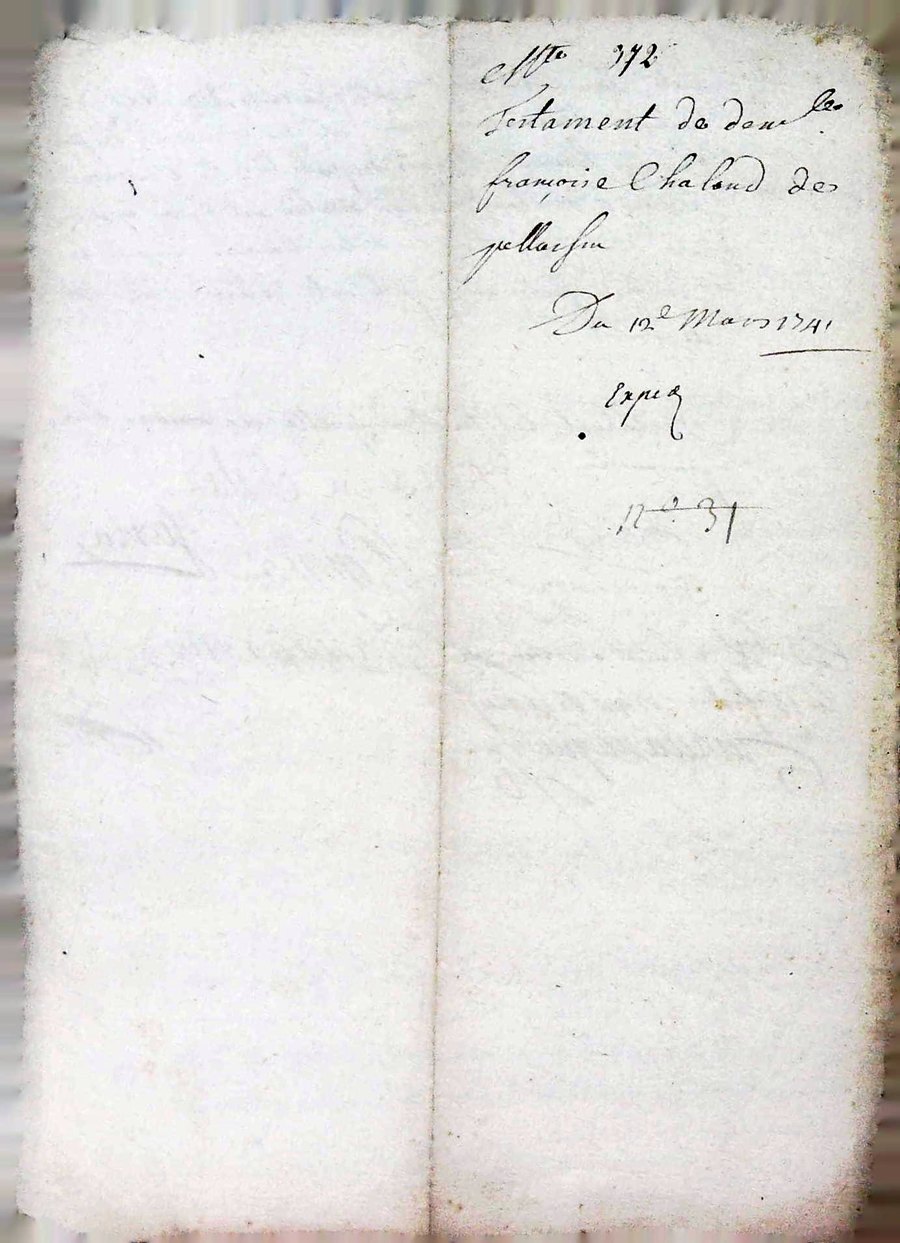 Mte 372
Testament de demlle
françoise Chaland de
pellussin
Du 12e Mars 1741
Expéd
N.e 31